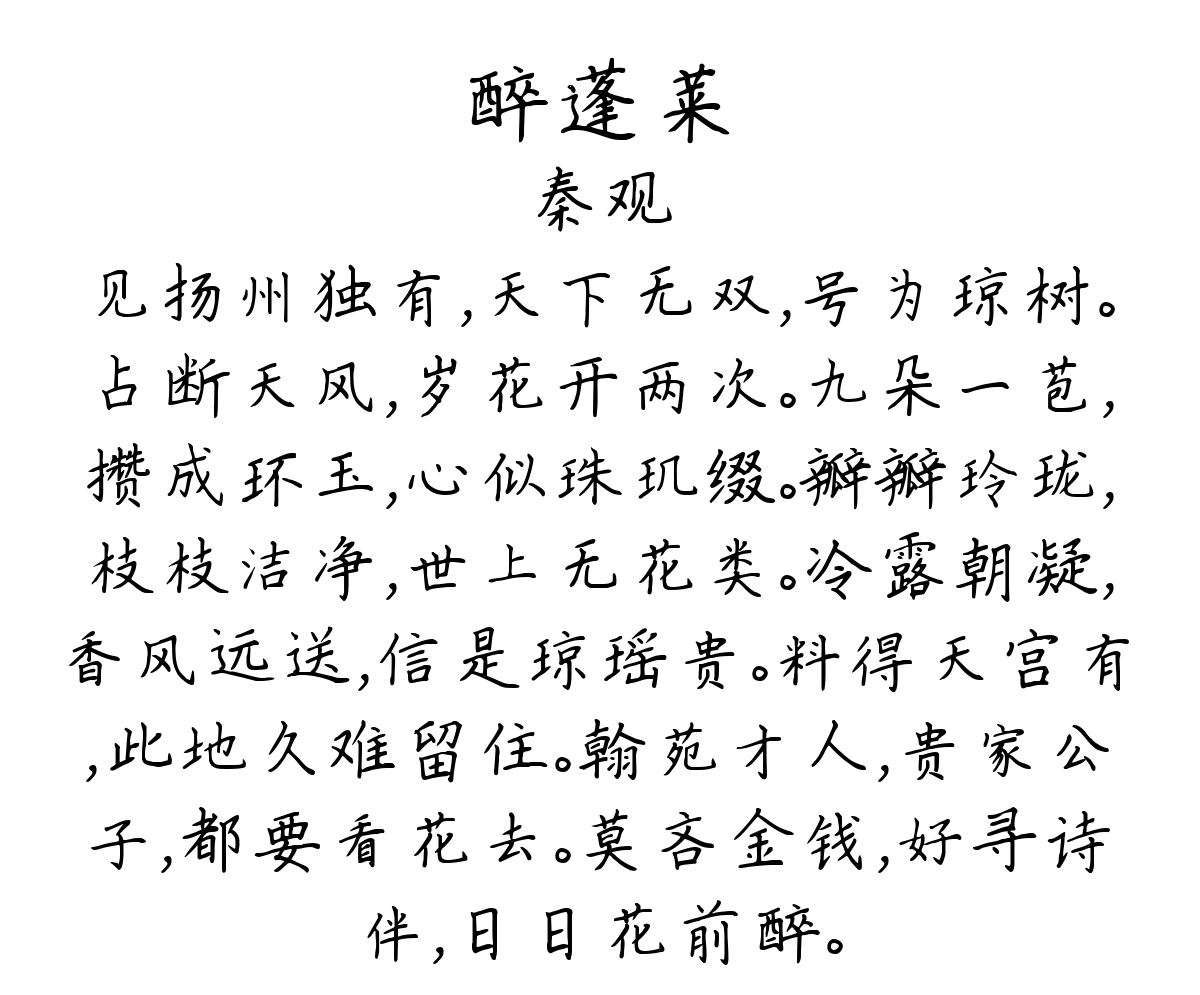 醉蓬莱
秦观
见扬州独有,天下无双,号为琼树。
占断天风,岁花开两次。九朵一苞,
攒成环玉,心似珠玑缀。瓣瓣玲珑,
枝枝洁净,世上无花类。冷露朝凝,
香风远送,信是琼瑶贵。料得天宫有
,此地久难留住。翰苑才人,贵家公
子,都要看花去。莫吝金钱,好寻诗
伴,日日花前醉。